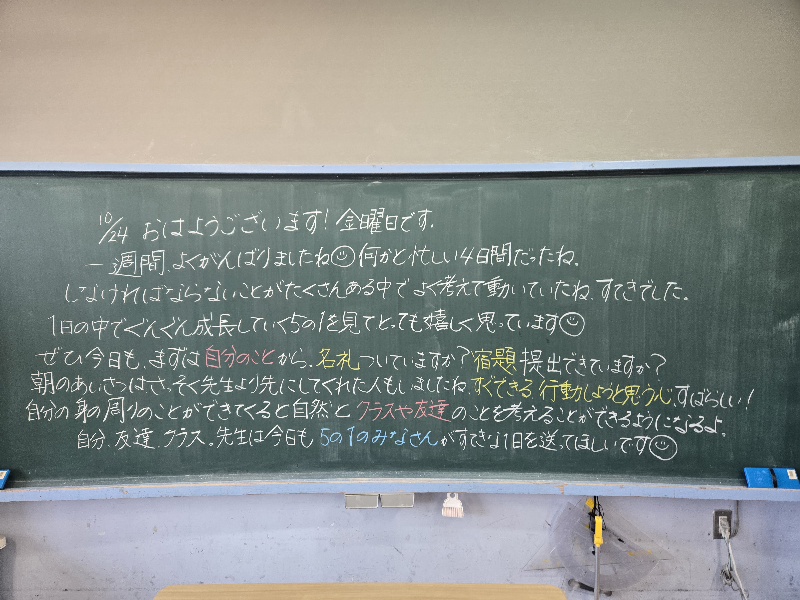 10/24 おはようございます!金曜日です。
一週間、よくがんばりましたね☺何かと忙しい4日間だったね。
しなければならないことがたくさんある中でよく考えて動いていたね、すてきでした。
1日の中でぐんぐん成長していく5の1を見てとっても嬉しく思っています☺
ぜひ今日も、まずは自分のことから、名札ついていますか?宿題提出できていますか?
朝のあいさつはさっそく先生より先にしてくれた人もしましたね、すぐできる行動しようと思う心、すばらしい!
自分の身の周りのことができてくると自然とクラスや友達のことを考えることができるようになるよ。
自分、友達、クラス。先生は今日も5の1のみなさんがすてきな1日を送ってほしいです☺